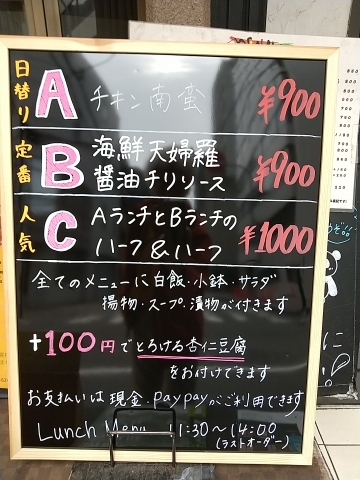 日替り A チキン南蛮 ¥900
定番 B 海鮮天婦羅
醤油チリソース ¥900
人気 C AランチとBランチの
ハーフ&ハーフ ¥1000
全てのメニューに白飯・小鉢・サラダ
揚物・スープ・漬物が付きます
+100円でとろける杏仁豆腐
をお付けできます
お支払いは現金・paypayがご利用できます
Lunch Menu 11:30～14:00
(ラストオーダー)